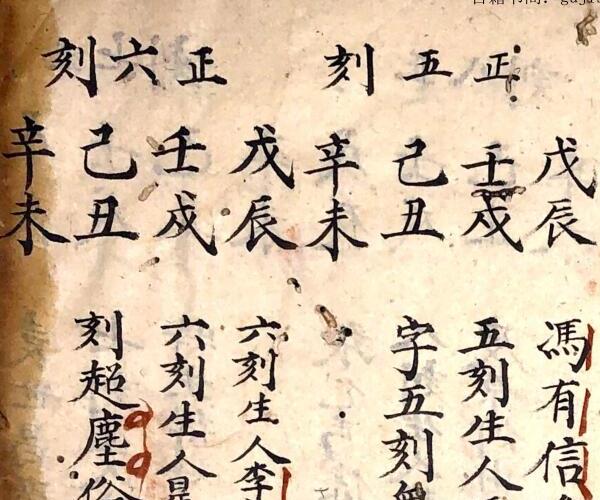 正五刻
戊辰
壬戌
己丑
辛未
馮有信
五刻生人
字五刻
正六刻
戊辰
壬戌
己丑
辛未
六刻生人李
六刻生人
刻超塵俗